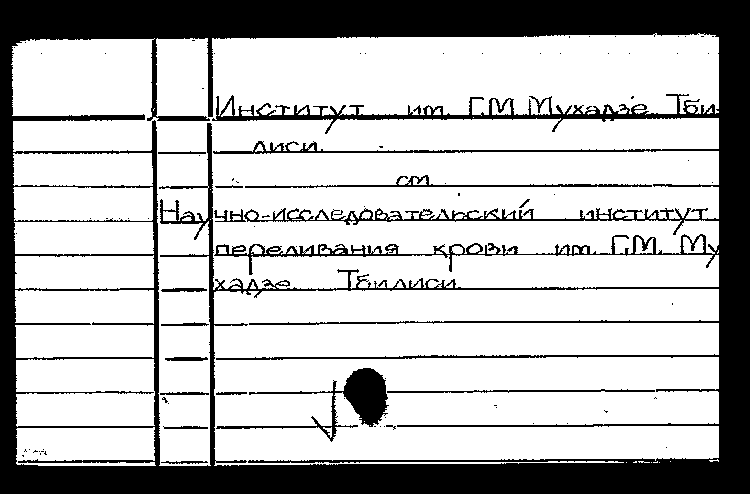 Институт им. Г.М. Мухадзе Тби-
лиси.
см.
Научно-исследовательский институт
переливания крови им. Г.М. Му
хадзе. Тбилиси.